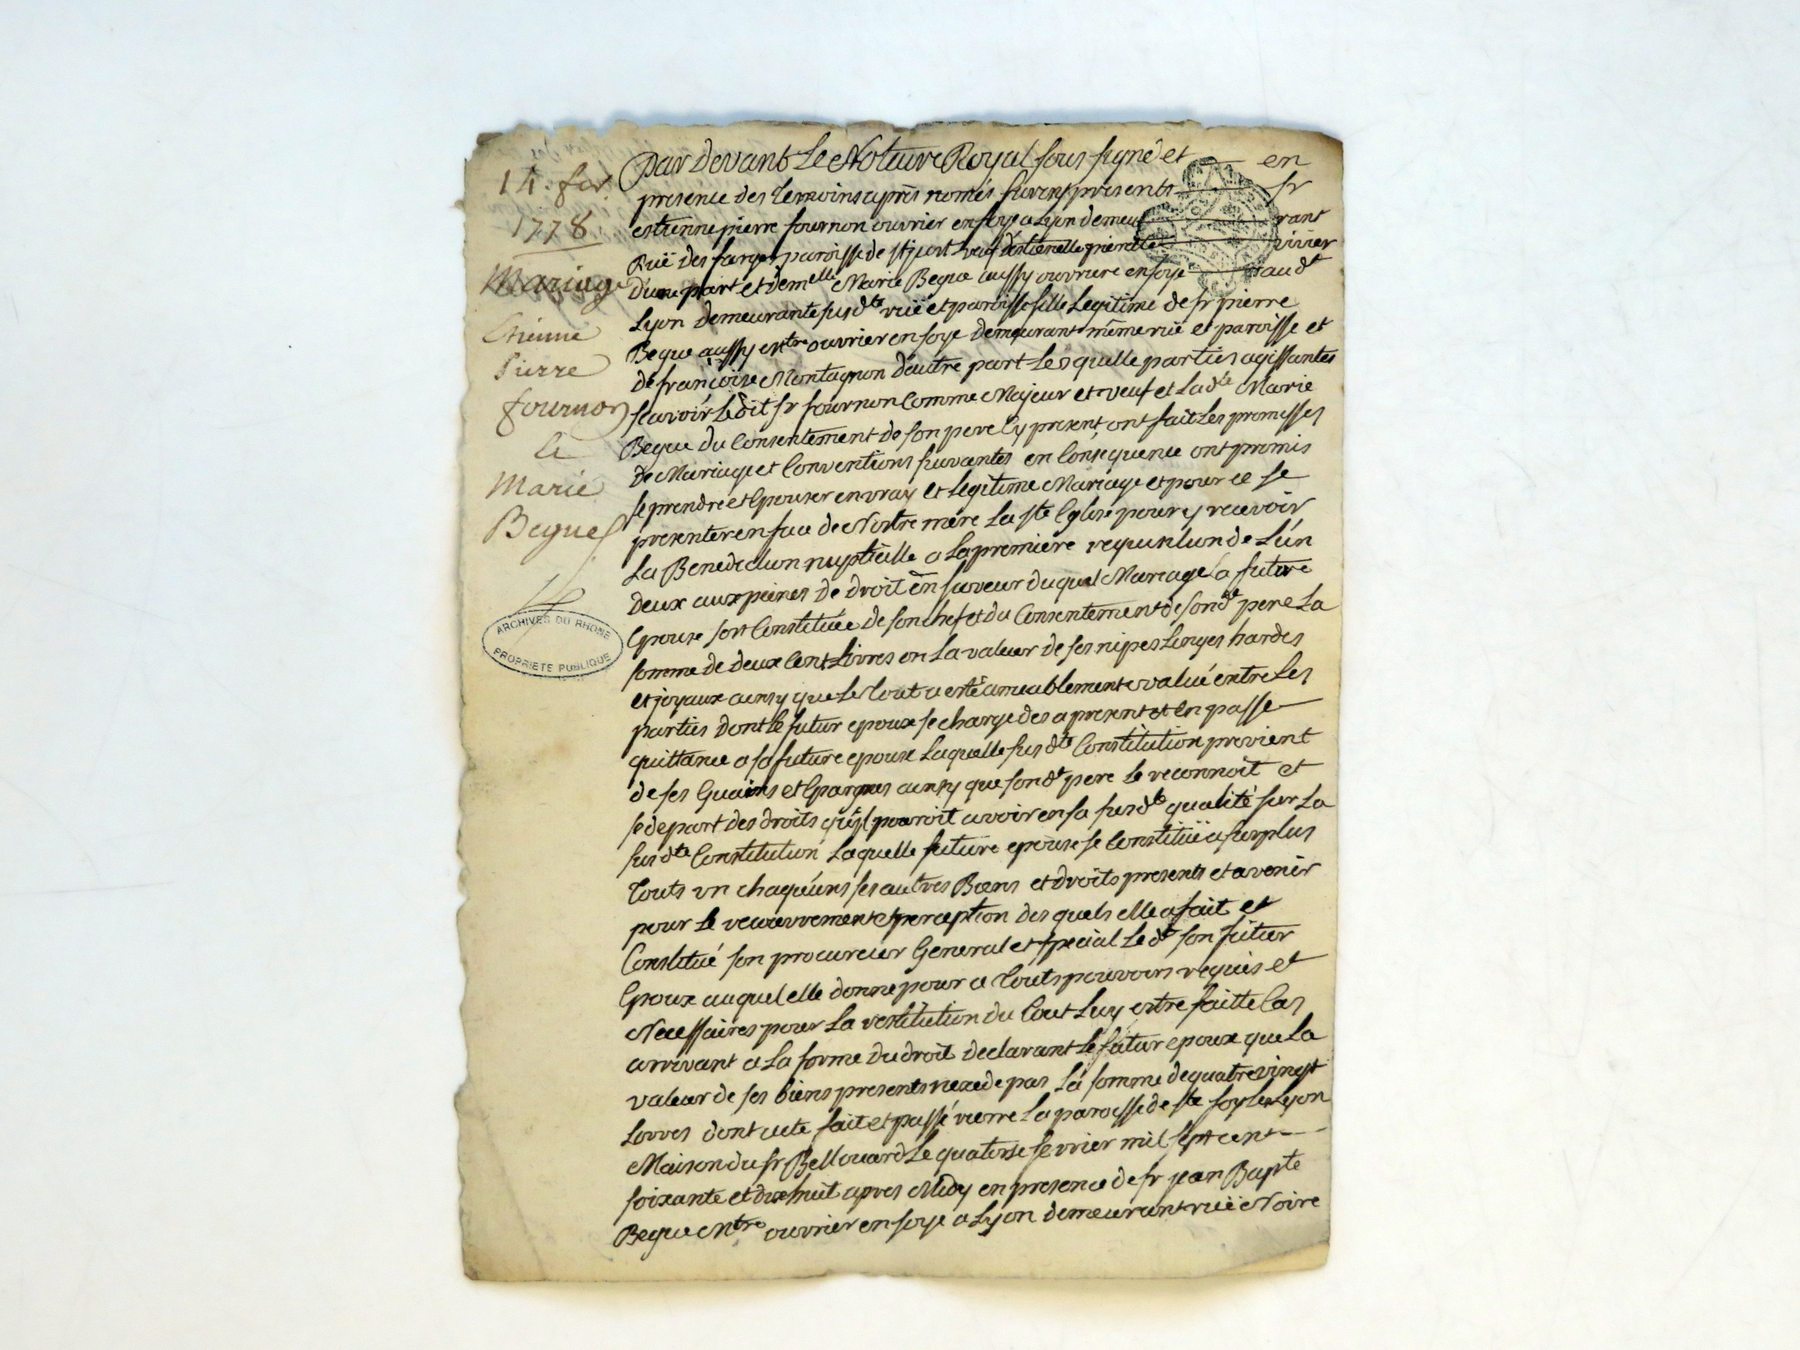 14. fer
1778
Mariage
Etienne
Pierre
fournon
le
Marie
Begue
ARCHIVES DU RHONE
PROPRIETE PUBLIQUE
Par Devant Le Notaire Royal sous signé et en
presence des temoins apres només furent presents sr
estienne pierre fournon ouvrier en soye a Lyon demeurant
Ruë des farges paroisse de st just veuf
D'une part et demelle Marie Begue aussy ouvriere en soye audt
Lyon demeurante susdte ruë et paroisse fille Legitime de sr pierre
Begue aussy ouvrier en soye demeurant même ruë et paroisse et
de françoise Montagnon d'autre part Les qu'elle parties agissantes
scavoir Le dit sr fournon Comme Majeur et veuf et La dte Marie
Begue du Consentement de son pere Cy present ont fait Les promesses
de Mariage et Conventions suivantes en Consequence ont promis
se prendre et Epouser en vray et Legitime Mariage et pour ce se
presenter en face de Nostre mére La ste Eglise pour y recevoir
La Benediction nuptialle a La premiere requisition de L'un
deux aux peines de droit en faveur du quel Mariage La future
Epouse sest Constituée de son chef et du Consentement de sondt pere La
somme de deux Cent Livres en La valeur de ses nipes Linges hardes
et joyaux ainsy que Le tout a esté ameablement evalué entre Les
parties dont Le futur epoux se charge des a present et en passe
quittance a sa future epouse Laquelle susdte Constitution provient
de ses Guains et Epargnes ainsy que sondt pere Le reconnoit et
se depart des droits qu'il pouroit avoir en sa susdte qualité sur La
susdte Constitution Laquelle future epouse se Constituë a surplus
touts un chaqu'uns ses autres Biens et droits presents et avenir
pour Le recouvrement et perception des quels elle a fait et
Constitué son procureur General et special Le dt son futur
Epoux auquel elle donne pour a touts pouvoirs requis et
Necessaires pour La restitution du tout Luy estre faitte Cas
arrivant a La forme du droit declarant Le futur epoux que La
valeur de ses biens presents n'excede pas La somme de quatre vingt
Livres dont acte fait et passé La paroisse de ste foy les Lyon
Maison du sr Bellouard Le quatorse fevrier mil sept cent
soixante et dixhuit apres Midy en presence de sr jean Bapte
Begue Mtre ouvrier en soye a Lyon demeurant ruë Noire